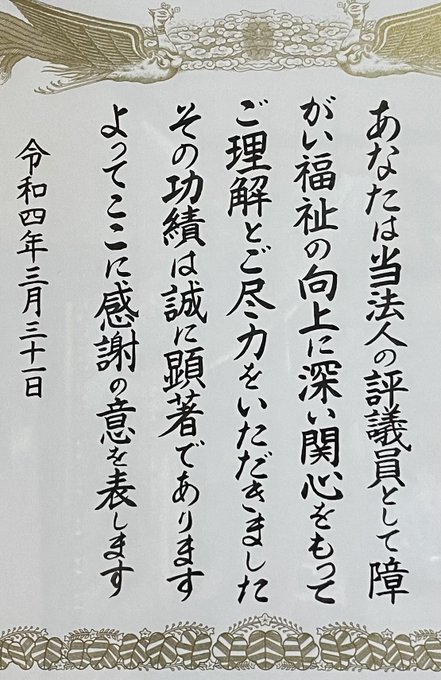 あなたは当法人の評議員として障
がい福祉の向上に深い関心をもって
ご理解とご尽力をいただきました
その功績は誠に顕著であります
よってここに感謝の意を表します
令和四年三月三十一日